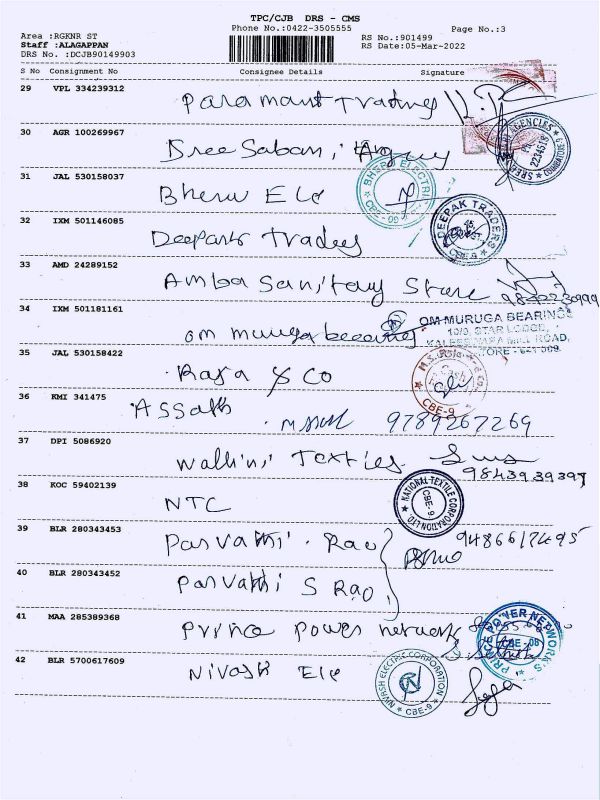 TPC/CJB DRS - CMS
Phone No.:0422-3505555
Page No.:3
Area :RGKNR ST
RS No.:901499
Staff :ALAGAPPAN
RS Date:05-Mar-2022
DRS No. :DCJB90149903
S No Consignment No Consignee Details Signature
29 VPL 334239312
Paramount Trading
30 AGR 100269967
Sree Sabari Agency
AGENCIES
31 JAL 530158037
Bheru Ele
BHERU ELECTRIC
32 IXM 501146085
Deepank Traders
DEEPAK TRADERS
CBE-9
33 AMD 24289152
Amba Sanitary Store
34 IXM 501181161
om muruga bearings
OM MURUGA BEARINGS
10/9, STAR LODGE,
MILL ROAD,
35 JAL 530158422
Raja & Co
CBE-9
36 KMI 341475
Assath
9789267269
37 DPI 5086920
Texties
9843939397
38 KOC 59402139
NTC
NATIONAL TEXTILE CORPORATION LTD
CBE-9
39 BLR 280343453
Parvathi . Rao
9486617495
40 BLR 280343452
Parvathi S Rao
41 MAA 285389368
Prince power network
POWER NETWORKS
CBE-
42 BLR 5700617609
Nivash Ele
NIVASH ELECTRIC CORPORATION
CBE-9